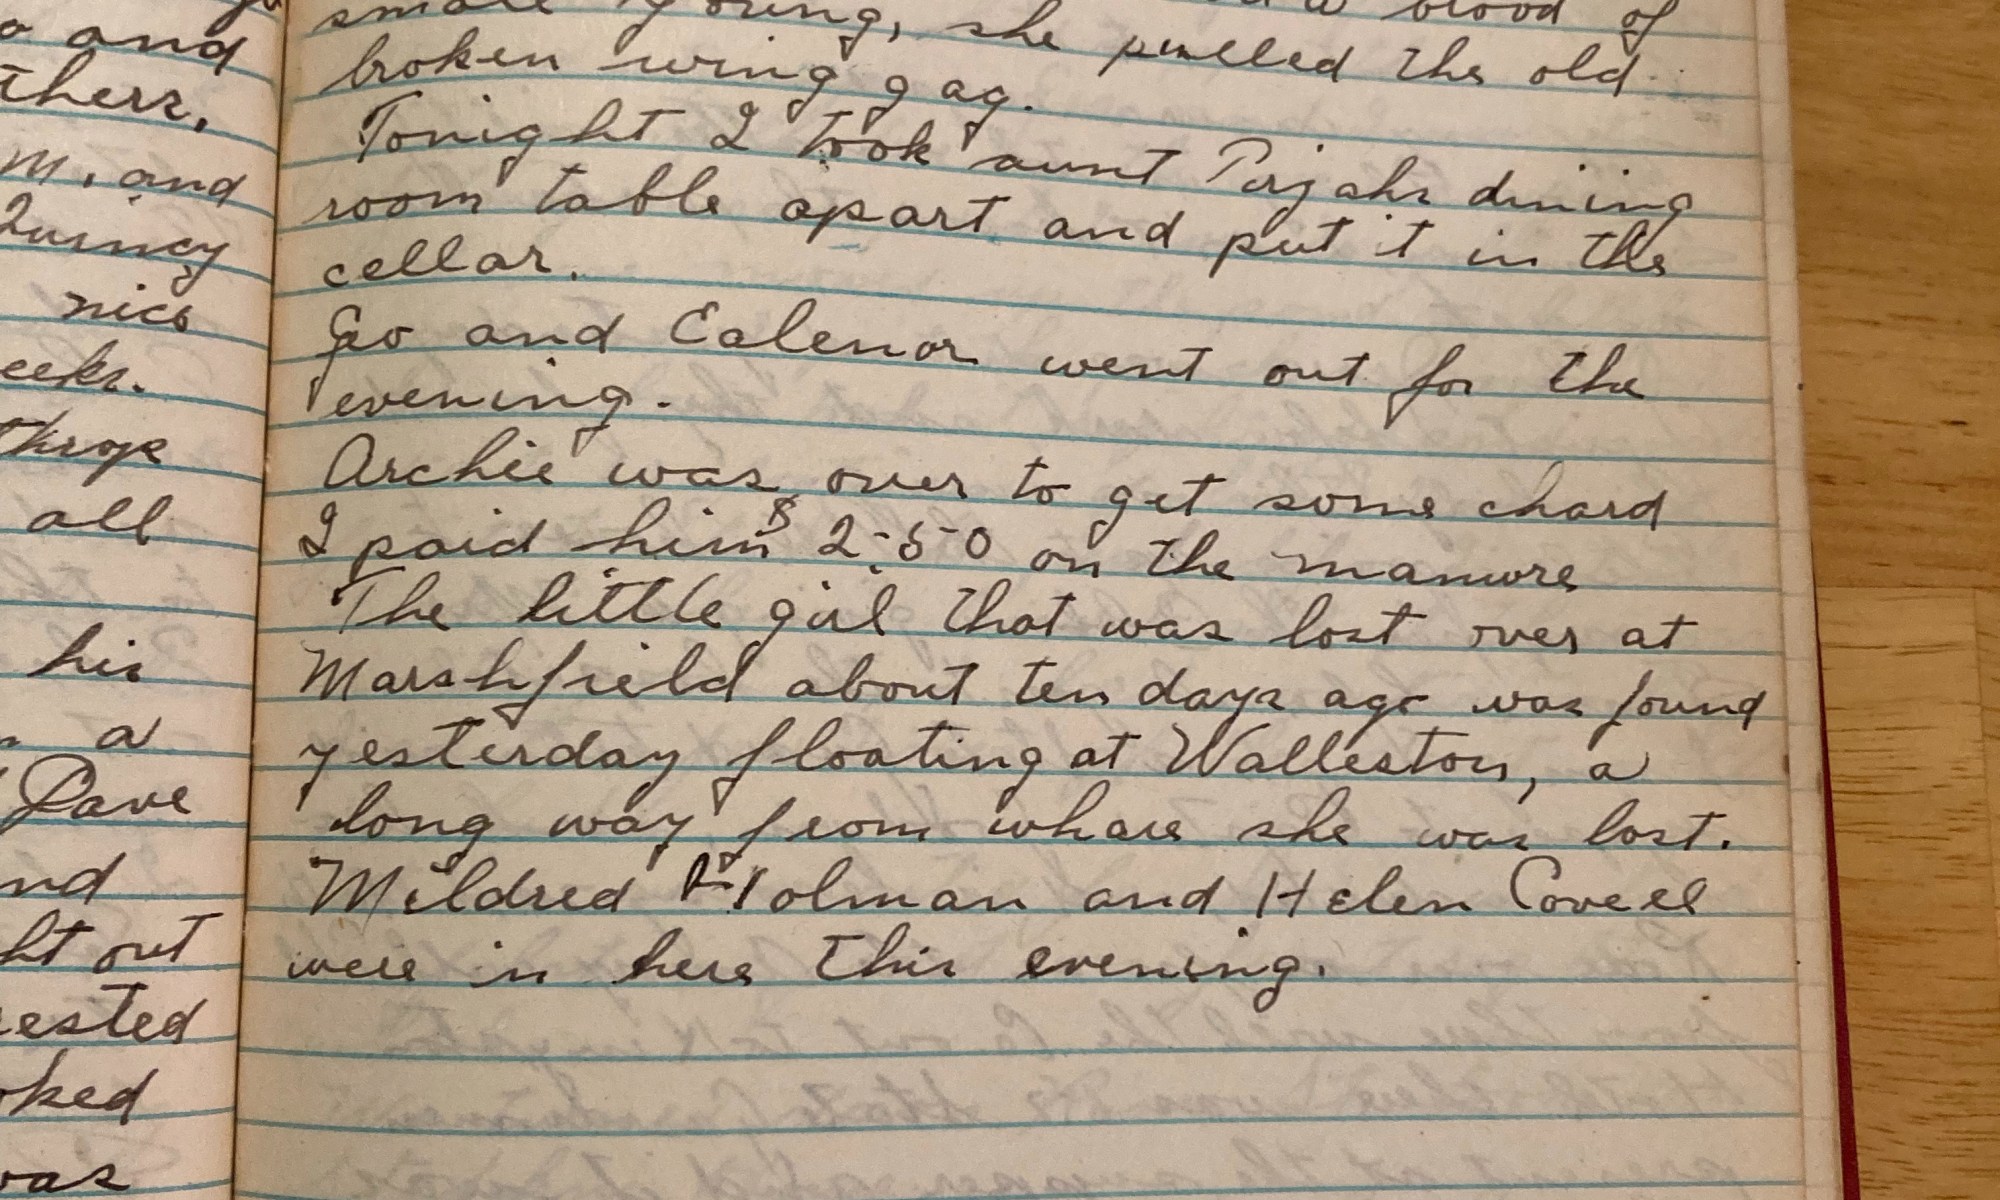 o and
thers,
m. and
Quincy
nice
eeks.
throp
all
his
a
Dave
nd
ht out
ested
oked
was
blood of
small young, she pulled the old
broken wing gag.
Tonight I took aunt dining
room table apart and put it in the
cellar.
Geo and Ealenor went out for the
evening.
Archie was over to get some chard
I paid him $2-50 on the manure
The little girl that was lost over at
Marshfield about ten days ago was found
yesterday floating at Walleston, a
long way from whare she was lost.
Mildred Holman and Helen Covell
were in here this evening.